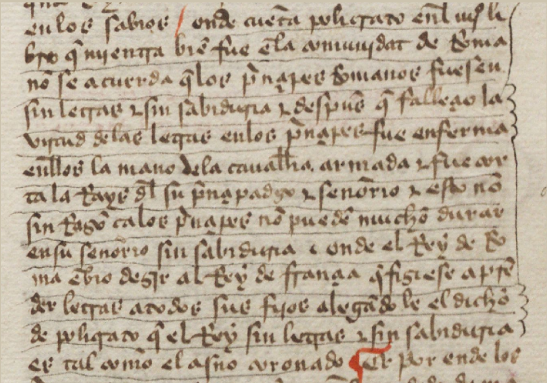 en los sabios / onde cueta poligrato enl uijº li
bro q̃ mientra biẽ fue ẽla comunidat de Roma
nõ se acuerda q̃ los p̃nçipes Romanos fuesen
sin letras τ sin sabiduria τ despues q̃ falleçio la
virtud delas letras enlos p̃nçipes fue enferma
enllos la mano dela cauallia armada τ fue cor
tala Rays dl su p̃nçipadgo τ señorio τ esto nõ
sin Razõ calos p̃nçipes nõ puedẽ mucho durar
en su señorio sin sabiduria τ onde el Rey de Ro
ma ẽbio desir al Rey de françia q̃ fisiese aprẽ
der letras atodos sus fijos alegãdo le el dicho
de poligrato q̃ el Rey sin letras τ sin sabiduria
es tal como el asno coronado Et por ende los